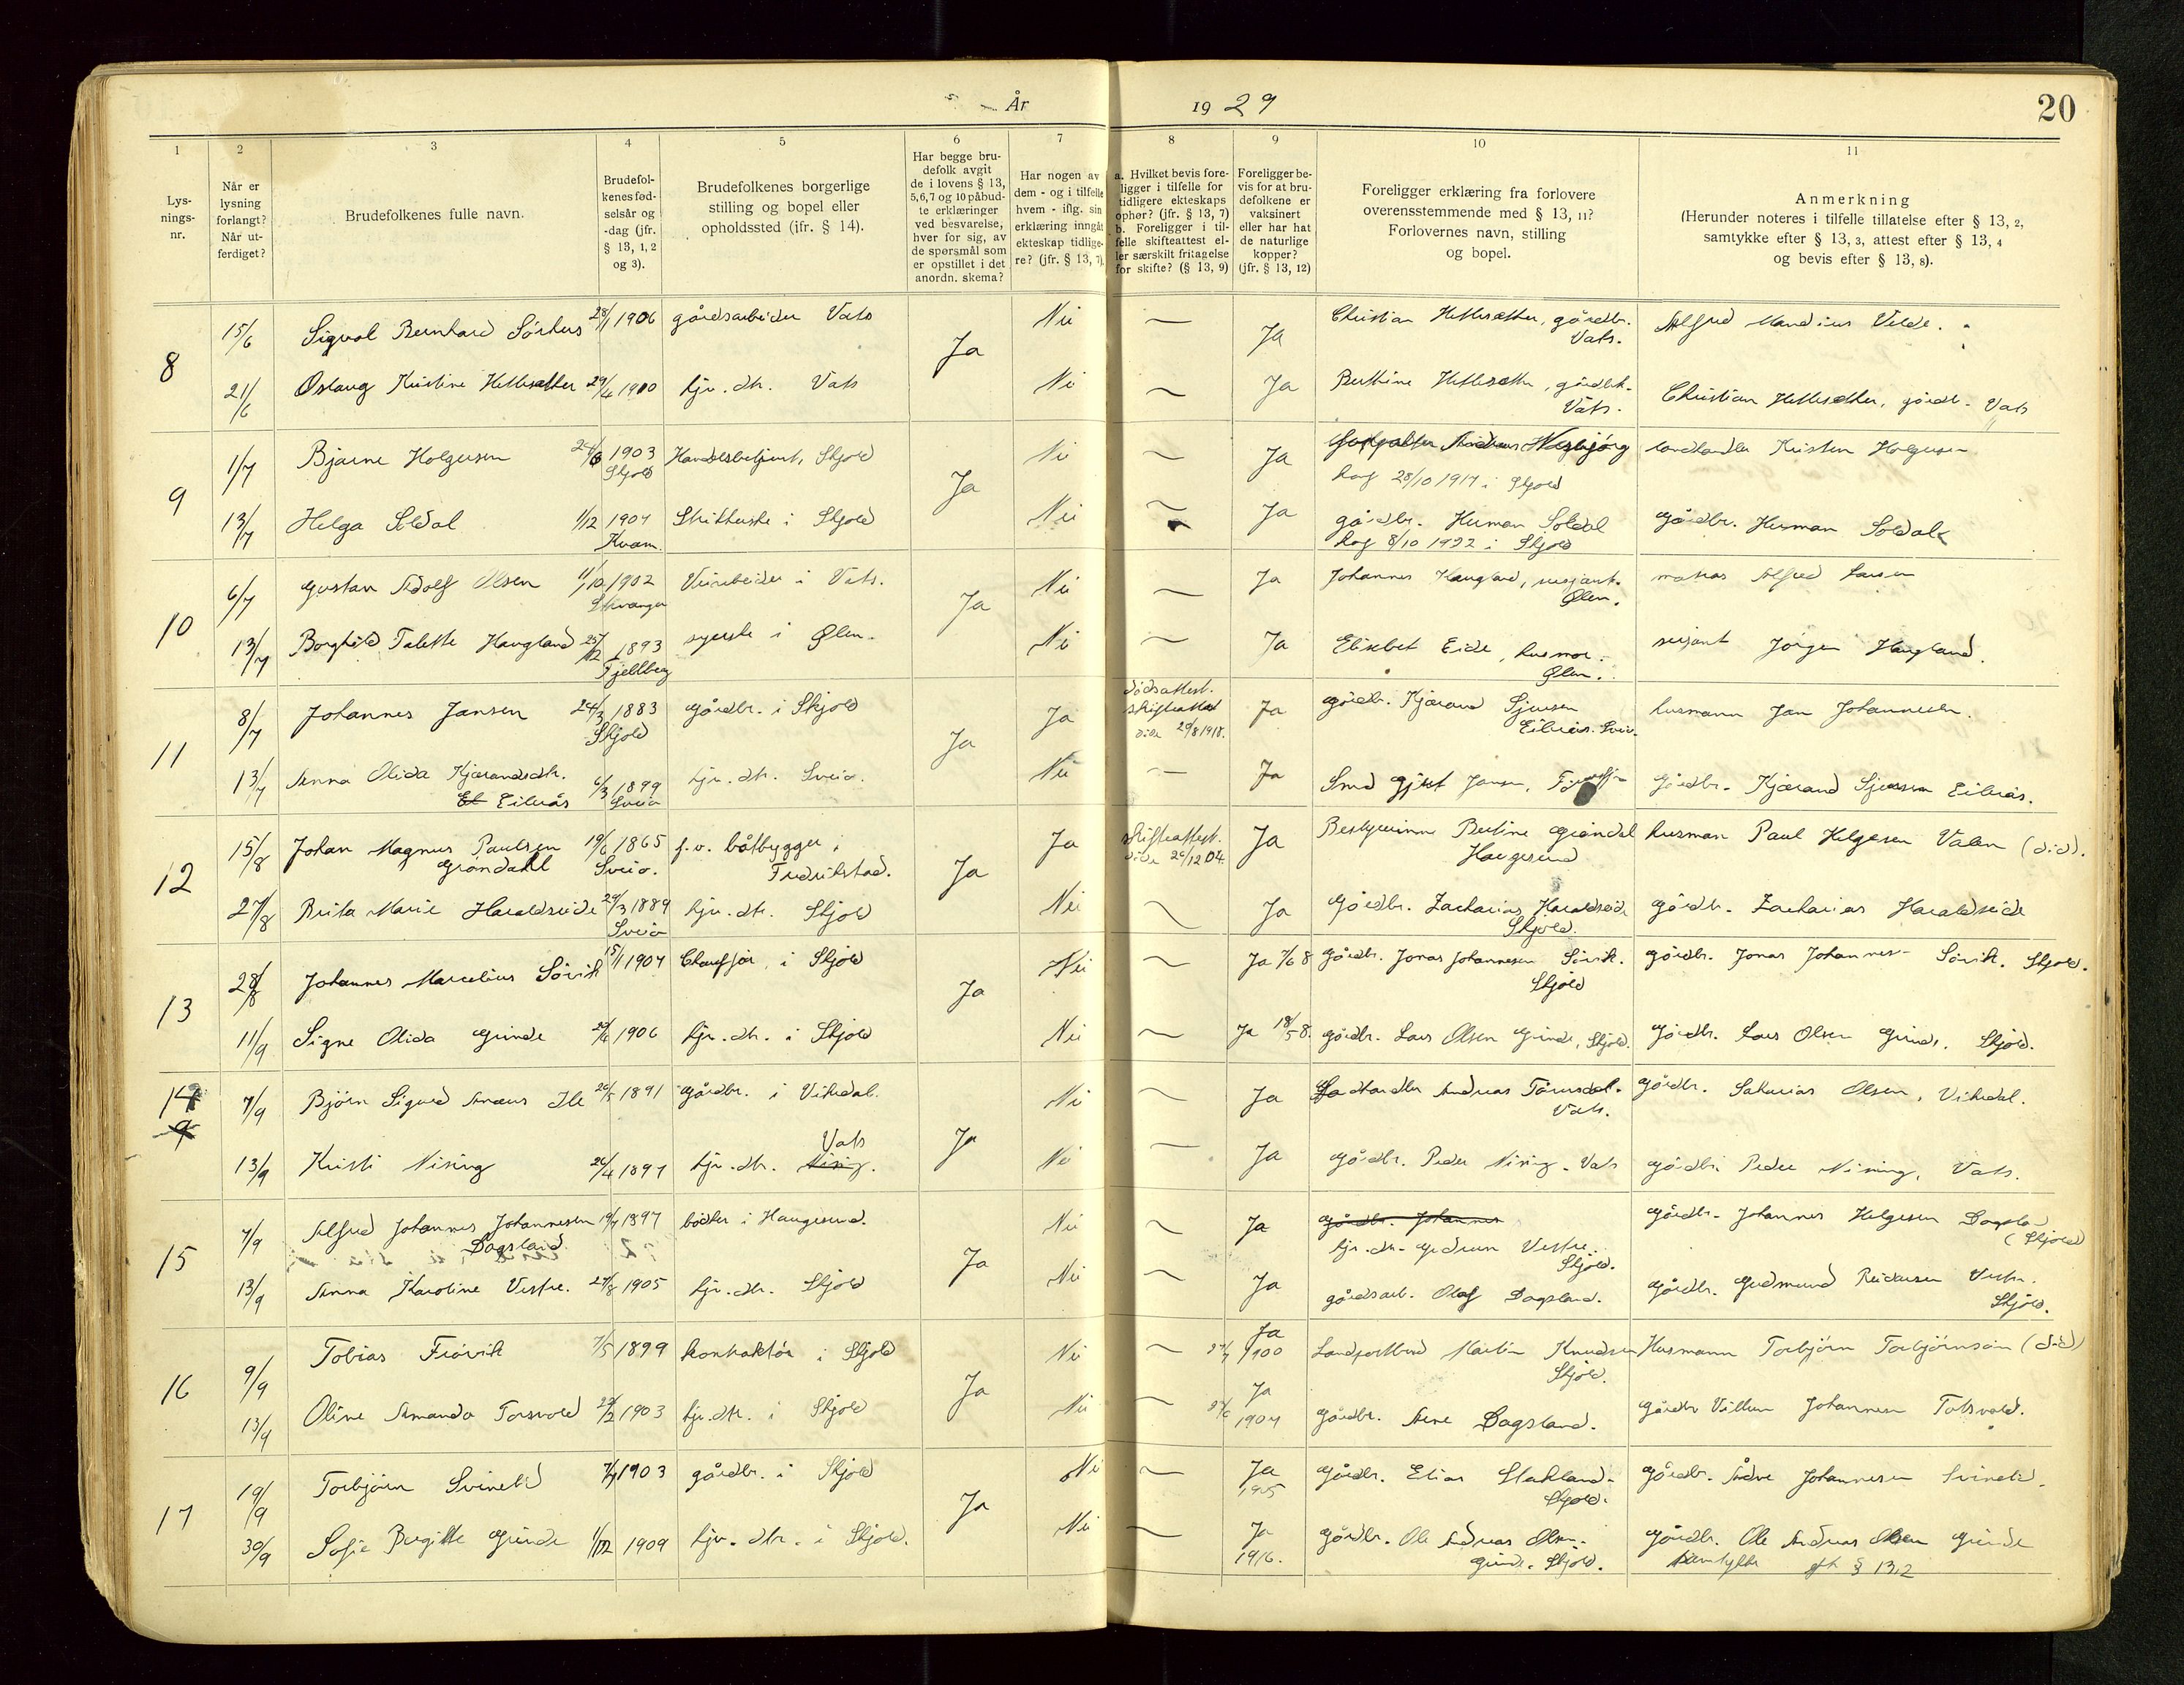 År 1929
20
1
2
3
4
5
6
7
8
9
10
11
Lysnings-nr.
Når er lysning forlangt? Når utferdiget?
Brudefolkenes fulle navn.
Brudefolkenes fødselsår og -dag (jfr. § 13, 1, 2 og 3).
Brudefolkenes borgerlige stilling og bopel eller opholdssted (jfr. § 14).
Har begge brudefolk avgit de i lovens § 13, 5, 6, 7 og 10 påbudte erklæringer ved besvarelse, hver for sig, av de spørsmål som er opstillet i det anordn. skema?
Har nogen av dem - og i tilfelle hvem - iflg. sin erklæring inngåt ekteskap tidligere? (jfr. § 13, 7).
a. Hvilket bevis foreligger i tilfelle for tidligere ekteskaps ophør? (jfr. § 13, 7)
b. Foreligger i tilfelle skifteattest eller særskilt fritagelse for skifte? (§ 13, 9)
Foreligger bevis for at brudefolkene er vaksinert eller har hat de naturlige kopper? (jfr. § 13, 12)
Foreligger erklæring fra forlovere overensstemmende med § 13, 11? Forlovernes navn, stilling og bopel.
Anmerkning (Herunder noteres i tilfelle tillatelse efter § 13, 2, samtykke efter § 13, 3, attest efter § 13, 4 og bevis efter § 13, 8).
8
15/6 Sigval Bernhard Sørhus 28/1 1906 gårdsarbeider Vats Ja Nei — Ja Christian Hettesæther, gårdbr. Vats. Alfred Mandius Velde.
21/6 Oslaug Kristine Hettesæther 29/4 1900 hjv. dtr. Vats Nei — Ja Berthine Hettesæther, Vats. Christian Hettesæther, gårdb. Vats
9
1/7 Bjarne Holgersen 1903 Skjold Handelsbetjent, Skjold Ja Nei — Ja Andreas Nesbjørg landhandler Kristen Holgersen
28/10 1917 i Skjold
13/7 Helga Soldal 1/12 1904 Kvam. i Skjold Nei — Ja gårdbr. Herman Soldal gårdbr. Herman Soldal
8/10 1922 i Skjold
10
6/7 Gustav Adolf Olsen 11/10 1902 Stavanger Veiarbeider i Vats. Ja Nei — Ja Johannes Haugland, Ølen. matros Alfred Larsen
13/7 Borghild Talette Haugland 25/12 1893 Fjellberg syerske i Ølen. Nei — Ja Elisebet Eide, husmor. Ølen. sersjant Jørgen Haugland.
11
8/7 Johannes Jansen 24/3 1883 Skjold gårdbr. i Skjold Ja Ja dødsattest. skifteattest 29/8 1918. Ja gårdbr. Kjærand Sjursen Eilerås. Sveio. husmann Jan Johannesen.
13/7 Anna Olida Kjærandsdtr. Eilerås 6/3 1899 Sveio hjv. dtr. Sveio. Nei — Ja Smed Gjert Jansen, gårdbr. Kjærand Sjursen Eilerås.
12
15/8 Johan Magnus Paulsen Grøndahl 19/6 1865 Sveio. f.v. båtbygger i Fredrikstad. Ja Ja skifteattest. 20/12 04. Ja Bestyrerinne Bertine Grøndal Haugesund husman Paul Helgesen Valen (død).
27/8 Brita Marie Haraldseide 29/3 1889 Sveio hjv. dtr. Skjold Nei — Ja Gårdbr. Zacharias Haraldseide Skjold. gårdbr. Zacharias Haraldseide
13
28/8 Johannes Marcelius Sørvik 15/1 1904 Chaufjør, i Skjold Ja Nei — Ja 7/6 8 gårdbr. Jonas Johannesen Sørvik. Skjold gårdbr. Jonas Johannes- Sørvik. Skjold.
11/9 Signe Olida Grinde 1906 hjv. dtr. i Skjold Nei — Ja 18/5 8. gårdbr. Lars Olsen Grinde, Skjold. gårdbr. Lars Olsen Grinde. Skjold.
14
7/9 Bjørn Sigurd Aneus Ile 26/5 1891 gårdbr. i Vikedal. Ja Nei — Ja Andreas Vats. gårdbr. Sakarias Olsen, Vikedal.
13/9 Kristi Nising 26/4 1897 hjv. dtr. Nising. Vats Nei — Ja gårdbr. Peder Nising. Vats gårdbr. Peder Nising, Vats.
15
7/9 Alfred Johannes Johannesen Dagsland 19/7 1897 bødker i Haugesund. Ja Nei — Ja Gårdbr. Johannes gårdbr. Johannes Helgesen Dagsla- (Skjold)
hjv. dtr. Gudrun Vestre. Skjold.
13/9 Anna Karoline Vestre. 27/8 1905 hjv. dtr. Skjold Nei — Ja gårdsarb. Olaf Dagsland. gårdbr. Gudmund Reidarsen Vestre. Skjold.
16
9/9 Tobias Frøvik 7/5 1899 kontraktør i Skjold Ja Nei — Ja 1900 Landpostbud Martin Knudsen Skjold. Husmann Torbjørn Torbjørnsen (død)
13/9 Oline Amanda Torsvold 29/2 1903 hjv. dtr. i Skjold Nei — Ja 1904 gårdbr. Arne Dagsland. gårdbr Villum Johannesen Totsvold.
17
19/9 Torbjørn Svinelid 1903 gårdbr. i Skjold Ja Nei — Ja 1905 gårdbr. Elias Stakland. Skjold. gårdbr. Ådne Johannesen Svinelid.
30/9 Sofie Bergitte Grinde 1/12 1909 hjv. dtr. i Skjold. Nei — Ja 1916. gårdbr. Ole Andreas Olsen. Grinde. Skjold. gårdbr. Ole Andreas Olsen Grinde
Samtykke eft. § 13,2